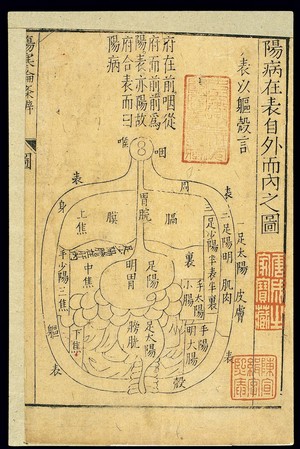 陽病在表自外而內之圖
表以軀殼言
府在前咽從
府而前前爲
陽表亦陽故
府合表而曰
陽病
喉
咽
表
周
身
上焦
膜
胃脘
膈
表
一足太陽 皮膚
二足陽明 肌肉
三足少陽半表半裏
裏
手少陽三焦
中焦
足陽
明胃
手太陽
小腸
手陽
明大腸
下焦
膀胱
足太陽
軀
殼
表
表
圖